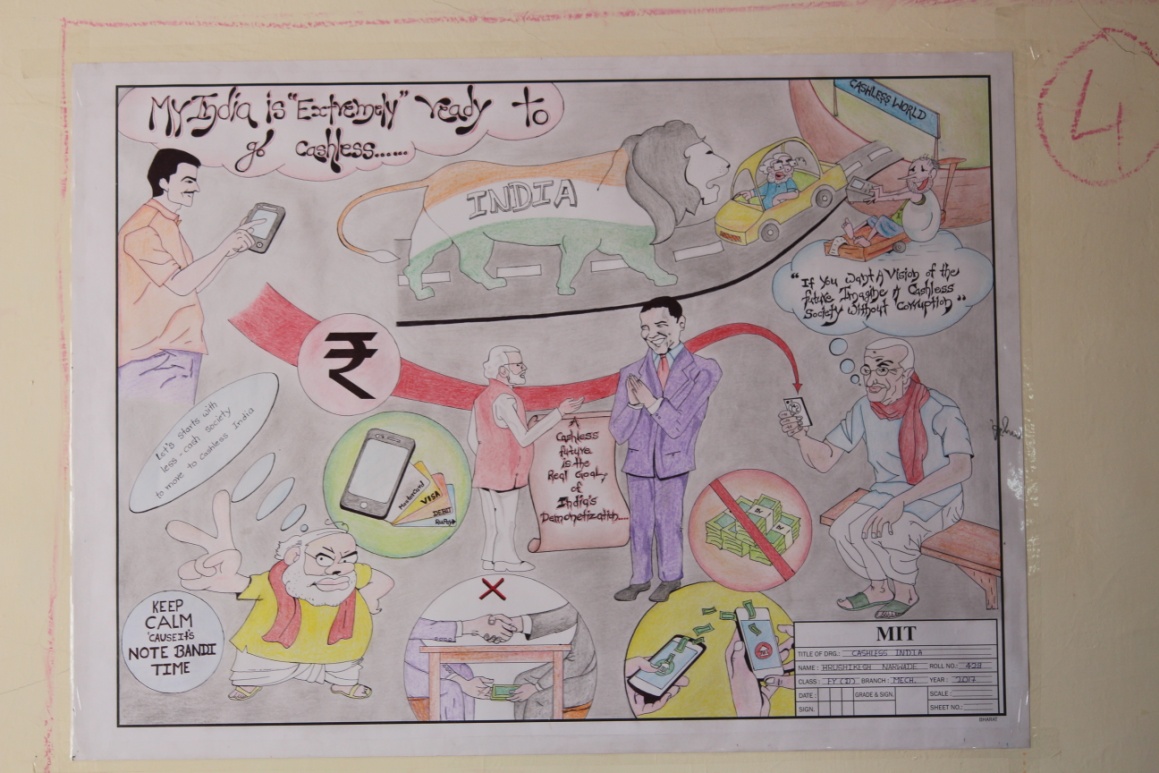 My India is "Extremely" ready to
go cashless......
4
CASHLESS WORLD
INDIA
"If You Want A Vision of the
future Imagine A Cashless
Society Without Corruption"
₹
Let's starts with
less-cash society
to move to Cashless India
MasterCard
VISA
DEBIT
RuPay
A
Cashless
future
is the
Real Goal
of
India's
Demonetization....
KEEP
CALM
'CAUSE it's
NOTE BANDI
TIME
MIT
TITLE OF DRG.: CASHLESS INDIA
NAME: HRUSHIKESH NARWADE ROLL NO.: 428
CLASS: FY (D) BRANCH: MECH. YEAR: 2017
DATE: GRADE & SIGN. SCALE:
SIGN. SHEET NO.:
BHARAT